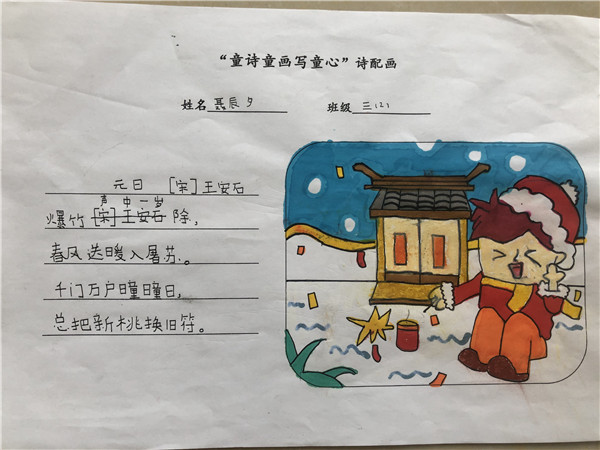 “童诗童画写童心”诗配画
姓名 聂辰夕 班级 三(2)
元日 [宋]王安石
声中一岁
爆竹[宋]王安石除，
春风送暖入屠苏。
千门万户曈曈日，
总把新桃换旧符。